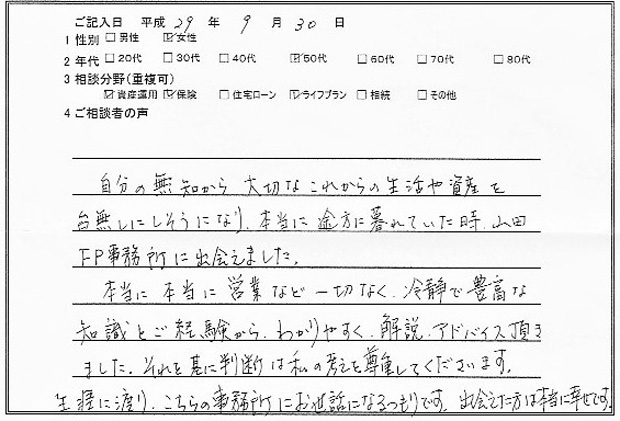 ご記入日 平成 29 年 9 月 30 日
1 性別 □男性 ☑女性
2 年代 □20代 □30代 □40代 ☑50代 □60代 □70代 □80代
3 相談分野(重複可)
☑資産運用 ☑保険 □住宅ローン ☑ライフプラン □相続 □その他
4 ご相談者の声
自分の無知から大切なこれからの生活や資産を
台無しにしそうになり、本当に途方に暮れていた時、山田
FP事務所に出会えました。
本当に本当に営業など一切なく、冷静で豊富な
知識とご経験から、わかりやすく、解説、アドバイス頂き
ました。それを基に判断は私の考えを尊重してくださいます。
生涯に渡り、こちらの事務所にお世話になるつもりです。出会えた方は本当に幸せです。